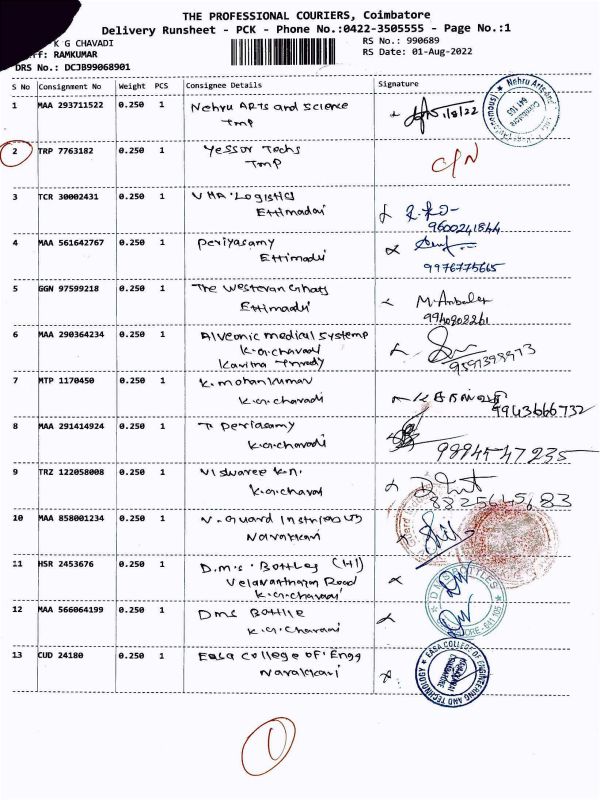 THE PROFESSIONAL COURIERS, Coimbatore
Delivery Runsheet - PCK - Phone No.:0422-3505555 - Page No.:1
K G CHAVADI
RS No.: 990689
ff: RAMKUMAR
RS Date: 01-Aug-2022
DRS No.: DCJB99068901
S No Consignment No Weight PCS Consignee Details Signature
1 MAA 293711522 0.250 1 Nehru Arts and Science 1/8/22
TMP
Nehru Arts And
Coimbatore
641 105
2 TRP 7763182 0.250 1 Yessor Techs C/N
TMP
3 TCR 30002431 0.250 1 VHA Logistics
Ettimadai
9600241844
4 MAA 561642767 0.250 1 Periyasamy
Ettimadai
9976775665
5 GGN 97599218 0.250 1 The Westeran Ghats
Ettimadai
9940908261
6 MAA 290364234 0.250 1 Alveonic medical Systemp
K.G.Chavadi
Kavitha
9597398973
7 MTP 1170450 0.250 1 K. Mohankumar
K.G.Chavadi
9943666732
8 MAA 291414924 0.250 1 Periasamy
K.G.Chavadi
9894547235
9 TRZ 122058008 0.250 1 Viswaree K.N.
K.G.Chavad
8825645683
10 MAA 858001234 0.250 1 V. Guard
Navakkavi
11 HSR 2453676 0.250 1 D.M.S. Bottles (HI)
Road
K.G.Chavadi
12 MAA 566064199 0.250 1 DMS Bottle
K.G.Chavadi
641 105
13 CUD 24180 0.250 1 Easa College of Engg
Navakkavi
EASA COLLEGE OF ENGINEERING AND TECHNOLOGY
1